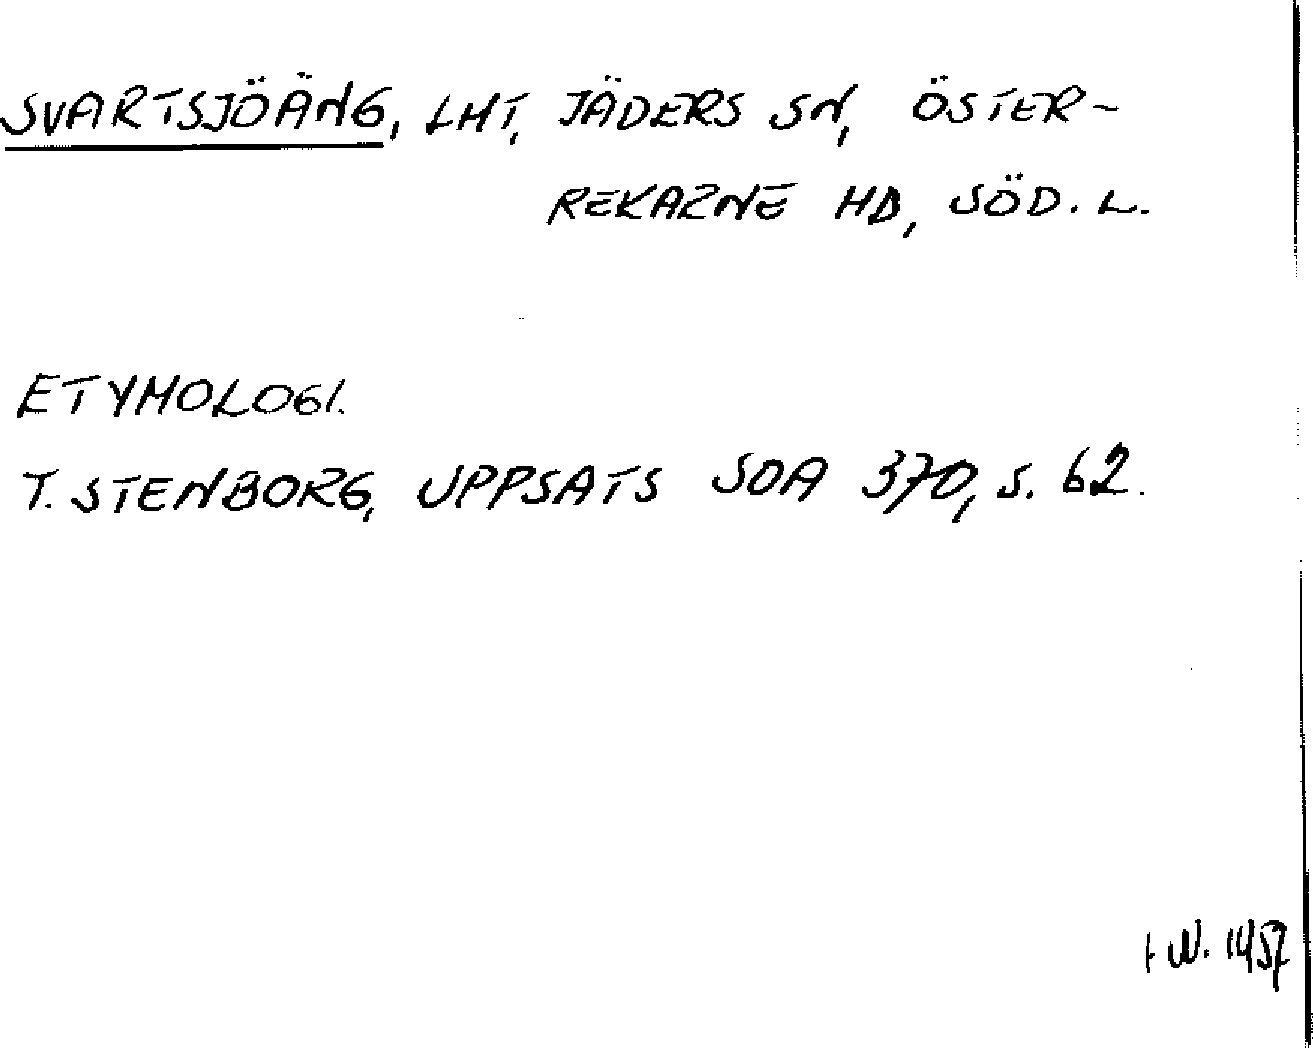 SVARTSJÖÄNG, LHT, JÄDERS SN, ÖSTER-
REKARNE HD, SÖD. L.
ETYMOLOGI.
T. STENBORG, UPPSATS SOA 370, S. 62.